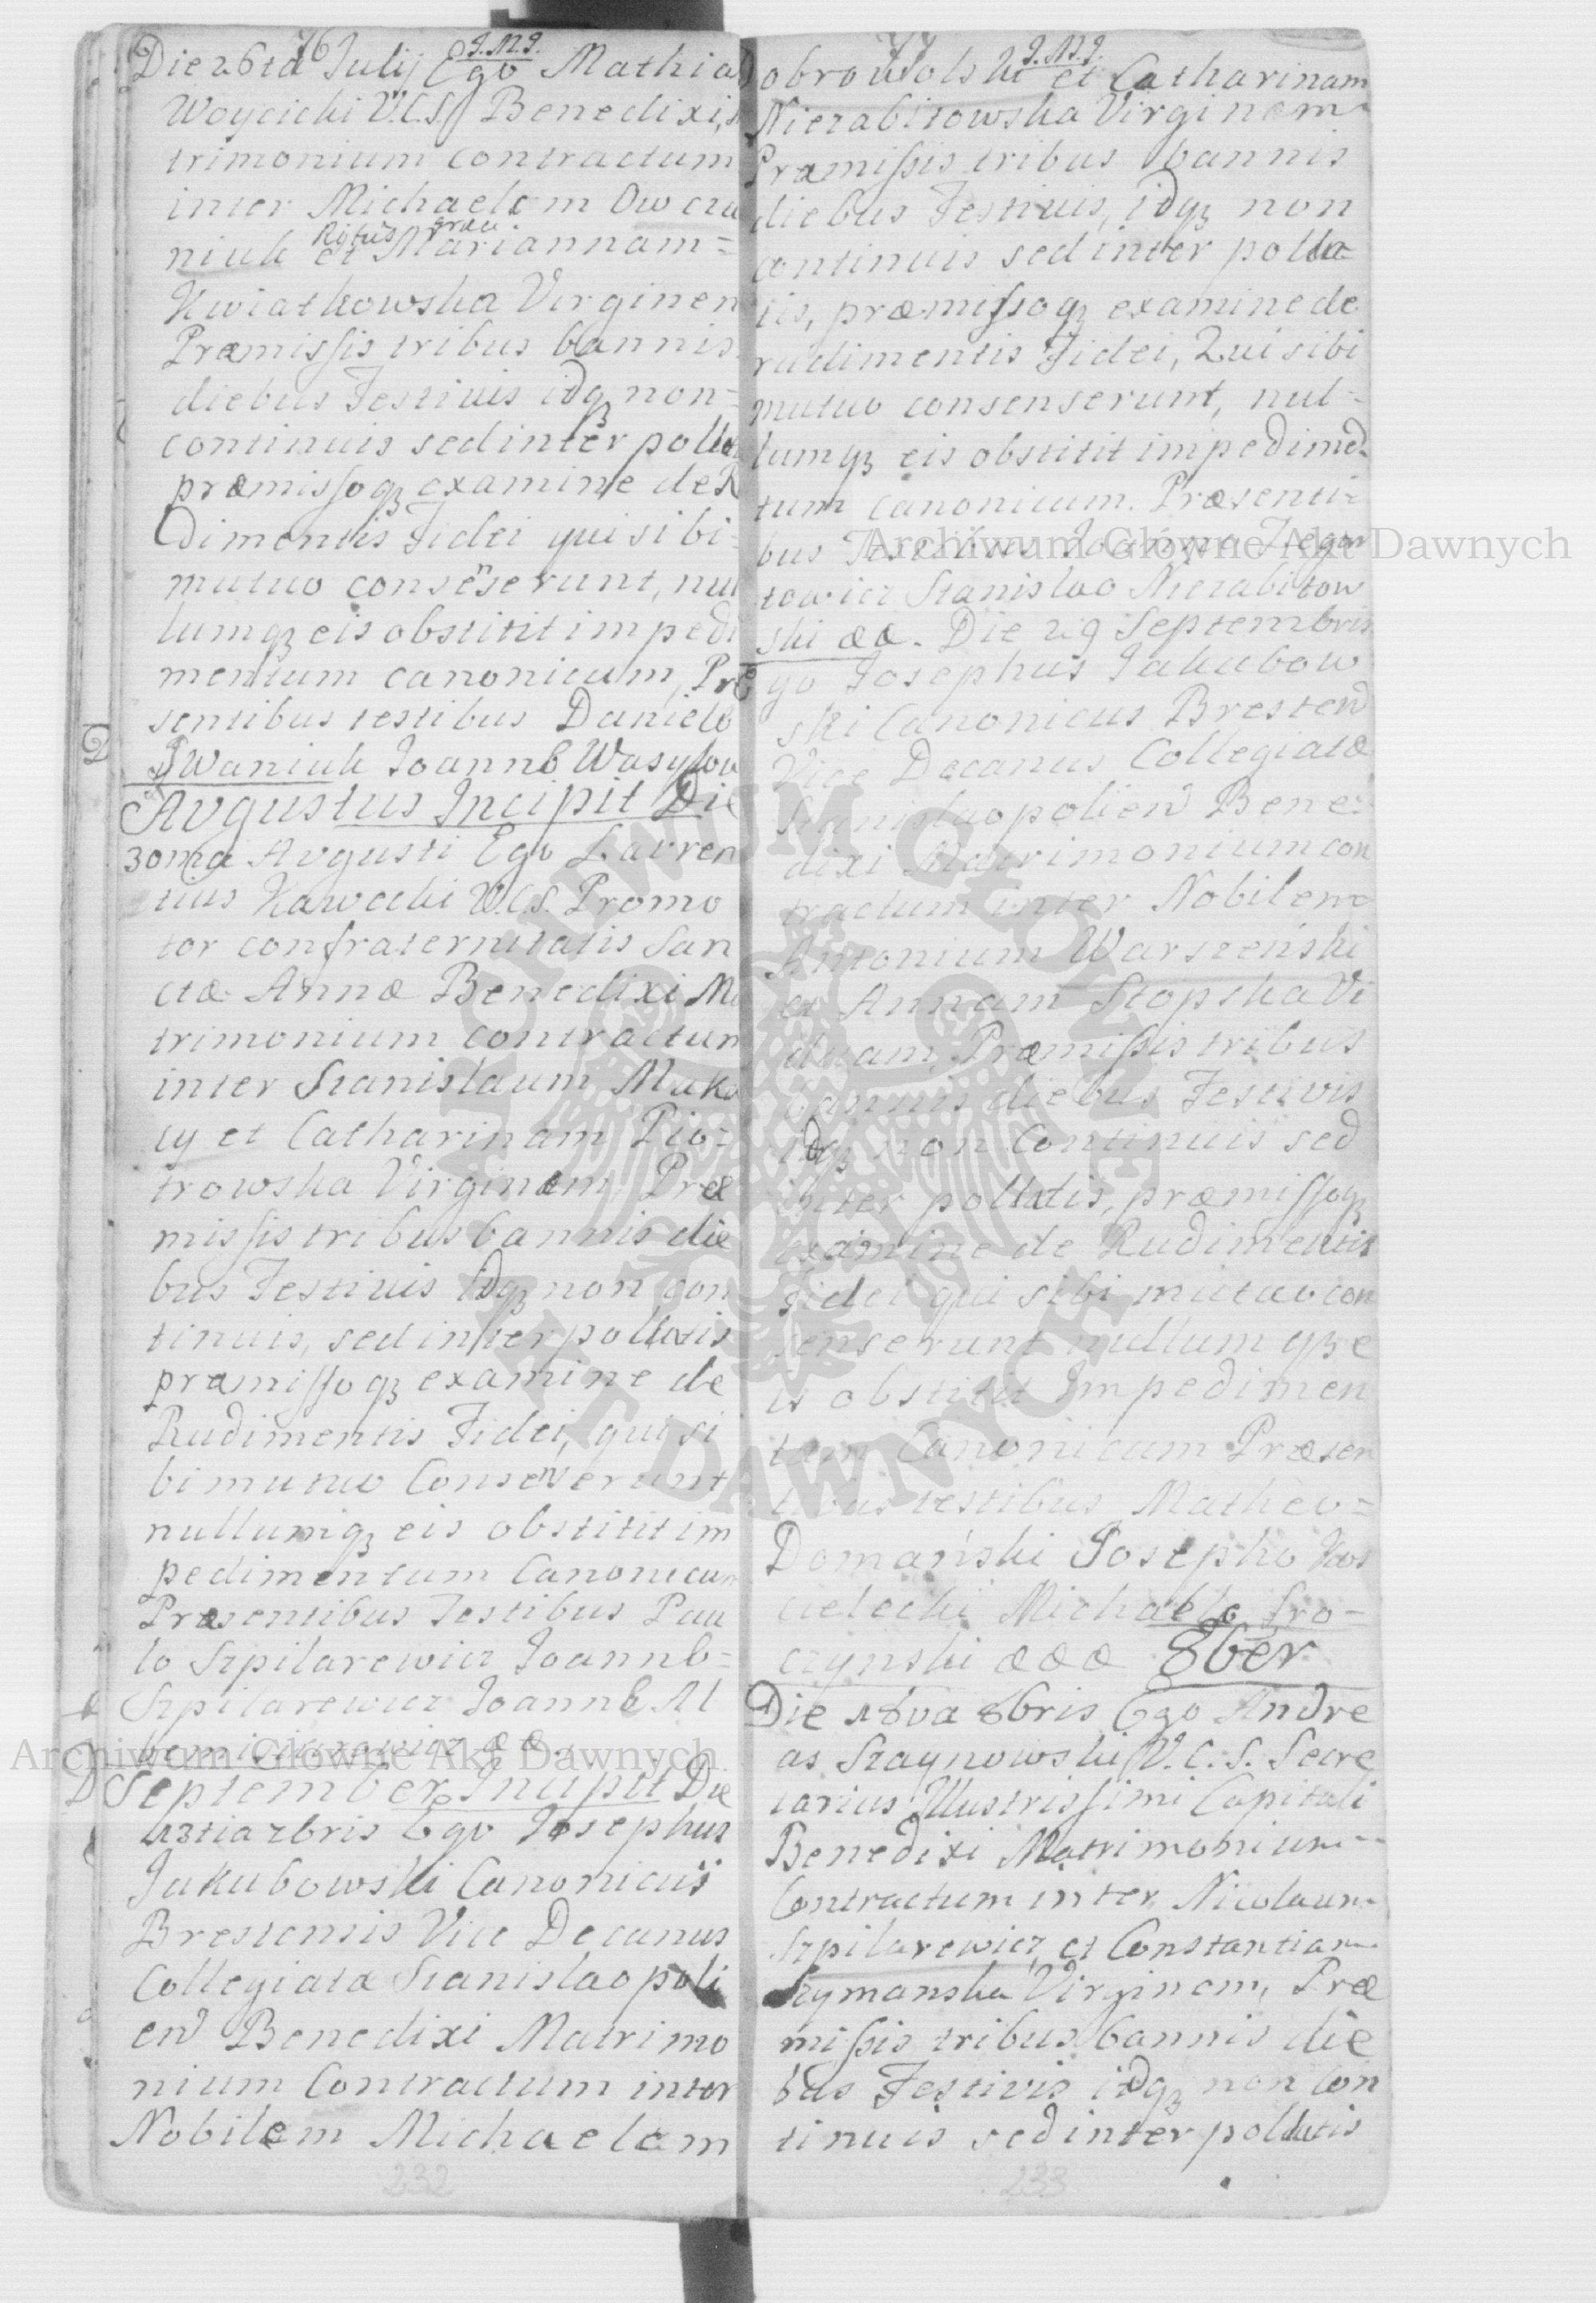 76
J.M.J.
Die 26ta Julij Ego Mathia
Woycicki V.C.S. Benedixi
trimonium contractum
inter Michaelem Owcza
Ritus graeci
niuk et Mariannam=
Kwiatkowska Virginem
Præmissis tribus bannis
diebus Festivis idqz non=
continuis sed inter polla
præmissoqz examine de R
Dimentis Fidei qui sibi
mutuo consenserunt, nul
lumqz eis obstitit impedi
mentum canonicum, Præ
sentibus testibus Daniele
Iwaniuk Joanne Wasylow
Augustus Incipit Die
30ma Augusti Ego Lauren
tius Kawecki V.C.S. Promo
tor confraternitatis San
ctæ Annæ Benedixi Ma
trimonium contractum
inter Stanislaum Mako
cy et Catharinam Pio=
trowska Virginem Præ
missis tribus bannis die
bus Festivis idqz non con
tinuis, sed inter pollatis
præmissoqz examine de
Rudimentis Fidei, qui si
bi mutuo Consenserunt
nullumqz eis obstitit im
pedimentum Canonicum
Præsentibus Testibus Pau
lo Szpilarewicz Joanne=
Szpilarewicz Joanne Al
September Incipit Die
13tia 7bris Ego Josephus
Jakubowski Canonicus
Brestensis Vice Decanus
Collegiatæ Stanislaopoli
en Benedixi Matrimo
nium Contractum inter
Nobilem Michaelem
232
77
J.M.J.
Dobrowolski et Catharinam
Nierabitowska Virginem
Præmissis tribus bannis
diebus Festivis, idqz non
continuis sed inter polla
tis, præmissoqz examine de
rudimentis Fidei, Qui sibi
mutuo consenserunt, nul=
lumqz eis obstitit impedimen
tum canonicum. Præsenti=
bus Testibus Joanne
towicz Stanislao Nierabitow
ski &&. Die 29 Septembris
Ego Josephus Jakubow
ski Canonicus Bresten
Vice Decanus Collegiatæ
Stanislaopolien Bene=
dixi Matrimonium con
tractum inter Nobilem
Antonium Warszeński
et Annam Stopska Vi
duam, Præmissis tribus
bannis diebus Festivis
idqz non Continuis sed
inter pollatis, præmissoqz
examine de Rudimentis
Fidei qui sibi mutuo con
senserunt nullumqz e
is obstitit Impedimen
tum Canonicum Præsen
tibus testibus Matheo=
Domański Josepho Kos
cielecki Michaele Sro=
czynski &&& 8ber
Die 18va 8bris Ego Andre
as Szaynowski V.C.S. Secre
tarius Illustrissimi Capituli
Benedixi Matrimonium
Contractum inter Nicolaum
Szpilarewicz et Constantiam
Szymanska Virginem, Præ
missis tribus bannis die
bus Festivis idqz non Con
tinuis sed inter pollatis
233
Archiwum Główne Akt Dawnych
Archiwum Główne Akt Dawnych
ARCHIWUM GŁÓWNE
AKT DAWNYCH